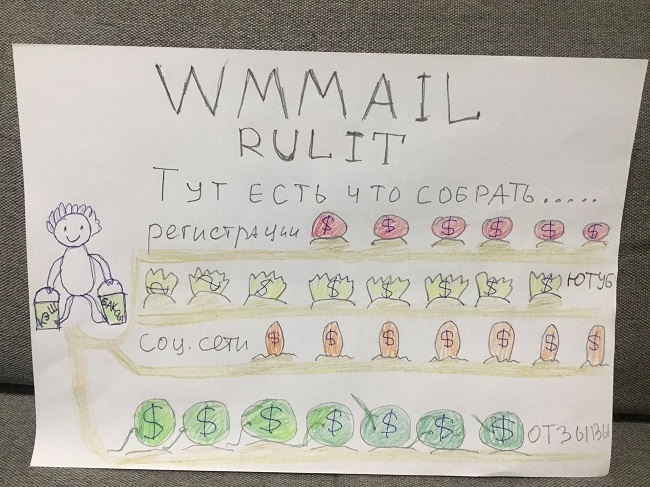 WMMAIL
RULIT
Тут есть что собрать.....
регистрации $ $ $ $ $ $
$ $ $ $ $ $ $ $ ЮТУБ
КЭШ
БАКСЫ
Соц. сети $ $ $ $ $ $ $
$ $ $ $ $ $ $ ОТЗЫВЫ